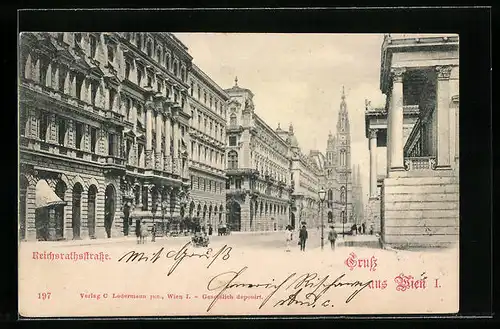 Reichsrathsstraße.
Mit Gruß
Gruß
aus Wien I.
197 Verlag C. Ledermann jun., Wien I. - Gesetzlich deponirt.